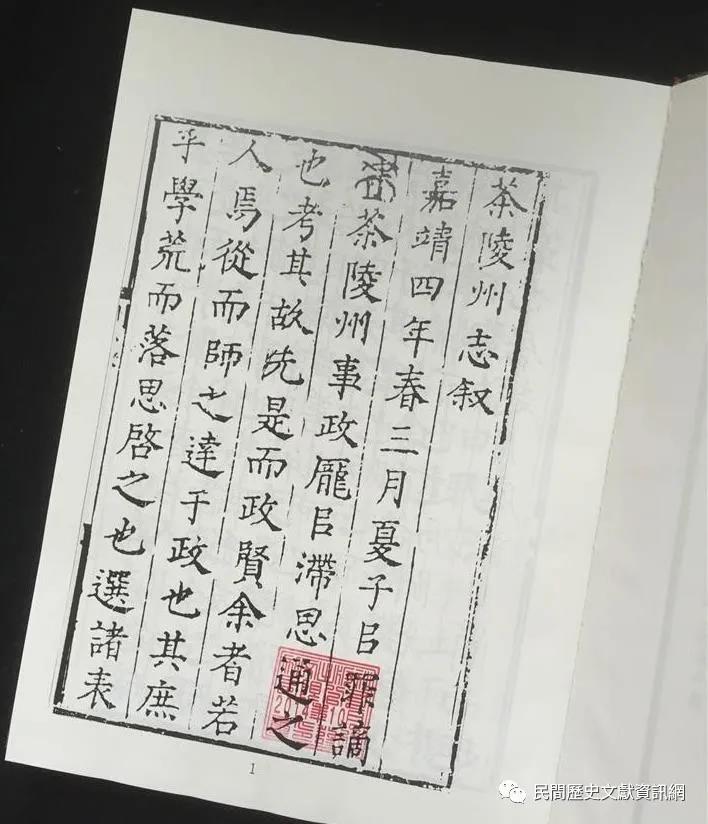 茶陵州志叙
嘉靖四年春三月夏子㠯罪謫
茶陵州事政龐㠯滯思通之
也考其故先是而政賢余者若
人焉從而師之達于政也其庶
乎學荒而落思啓之也選諸表
1
民間歷史文獻資訊網